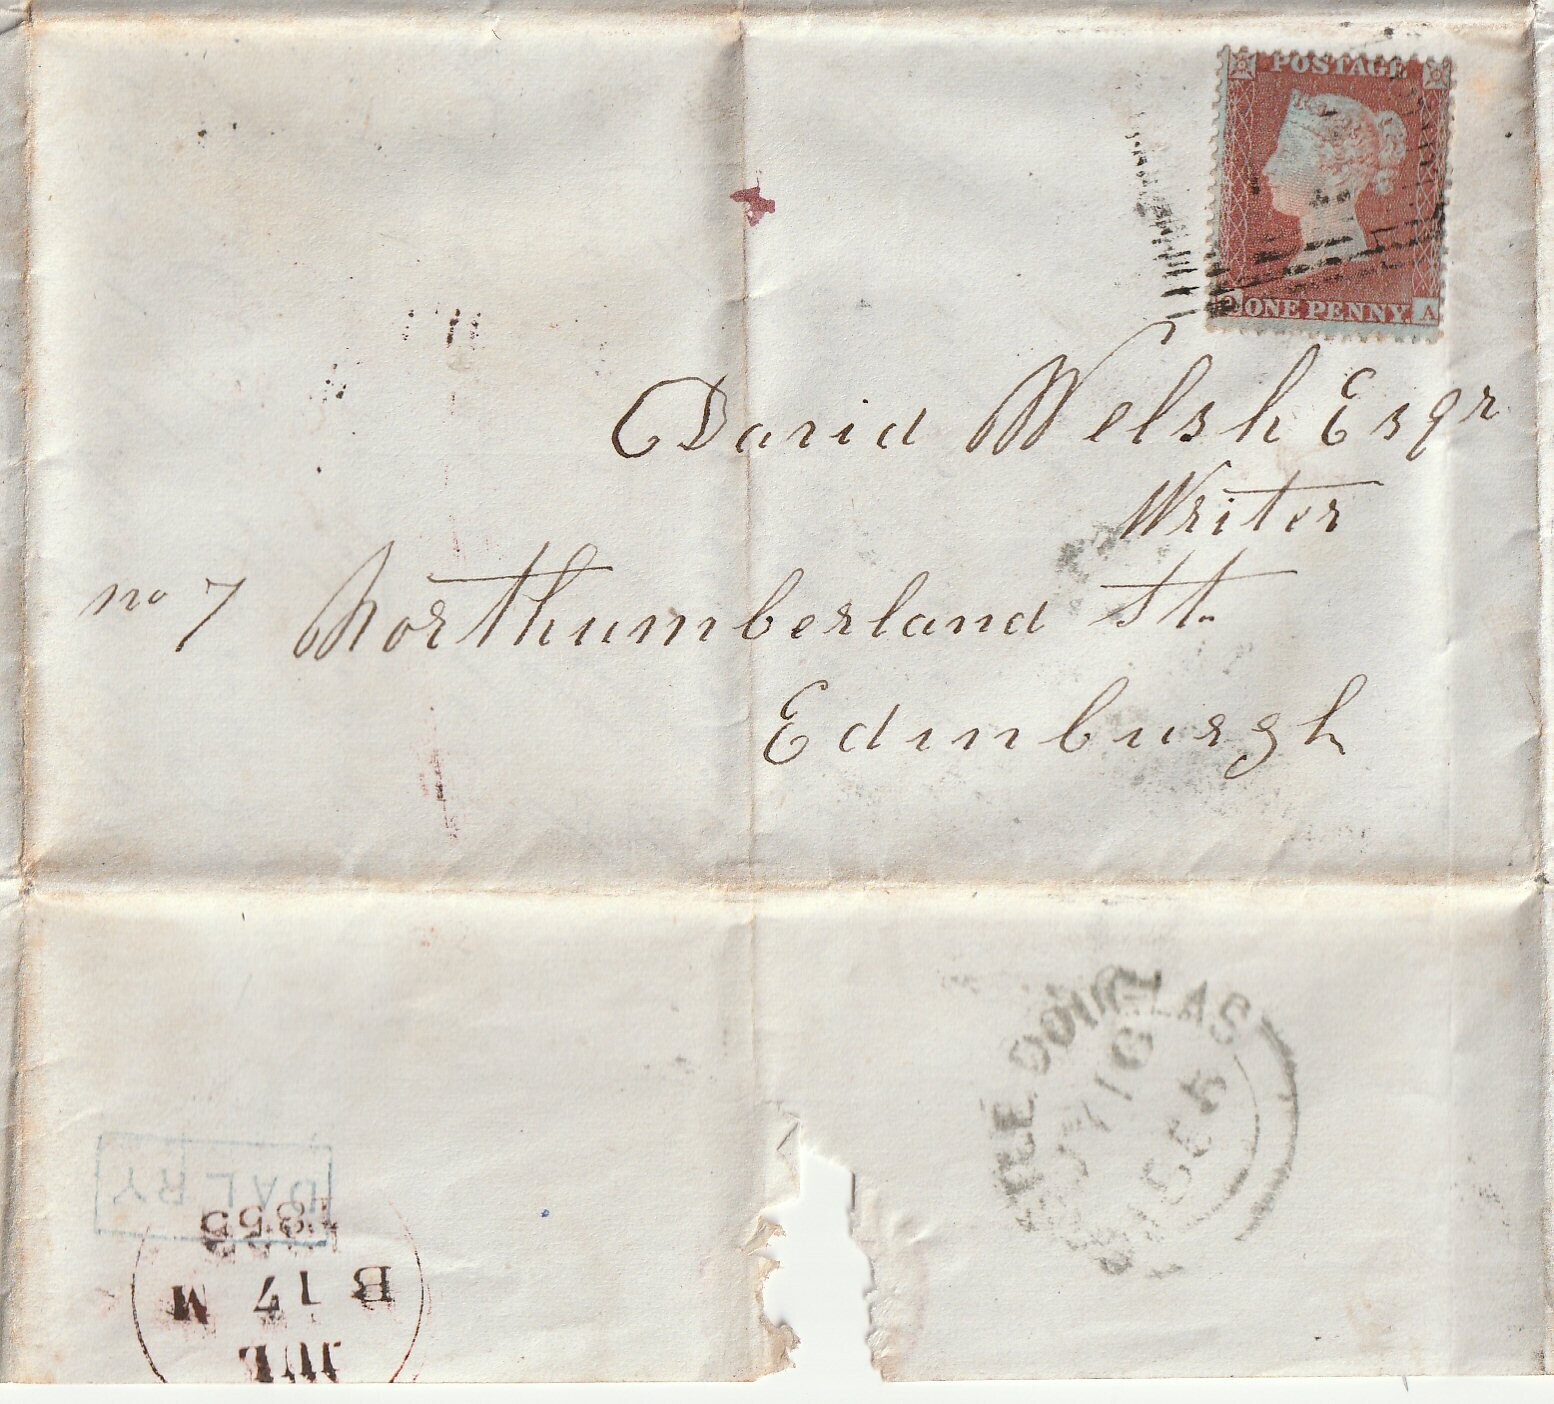 POSTAGE
ONE PENNY.
A
David Welsh Esqr
Writer
no 7 Northumberland St.
Edinburgh
CASTLE DOUGLAS
DALRY
JUE
B 17 M
1855